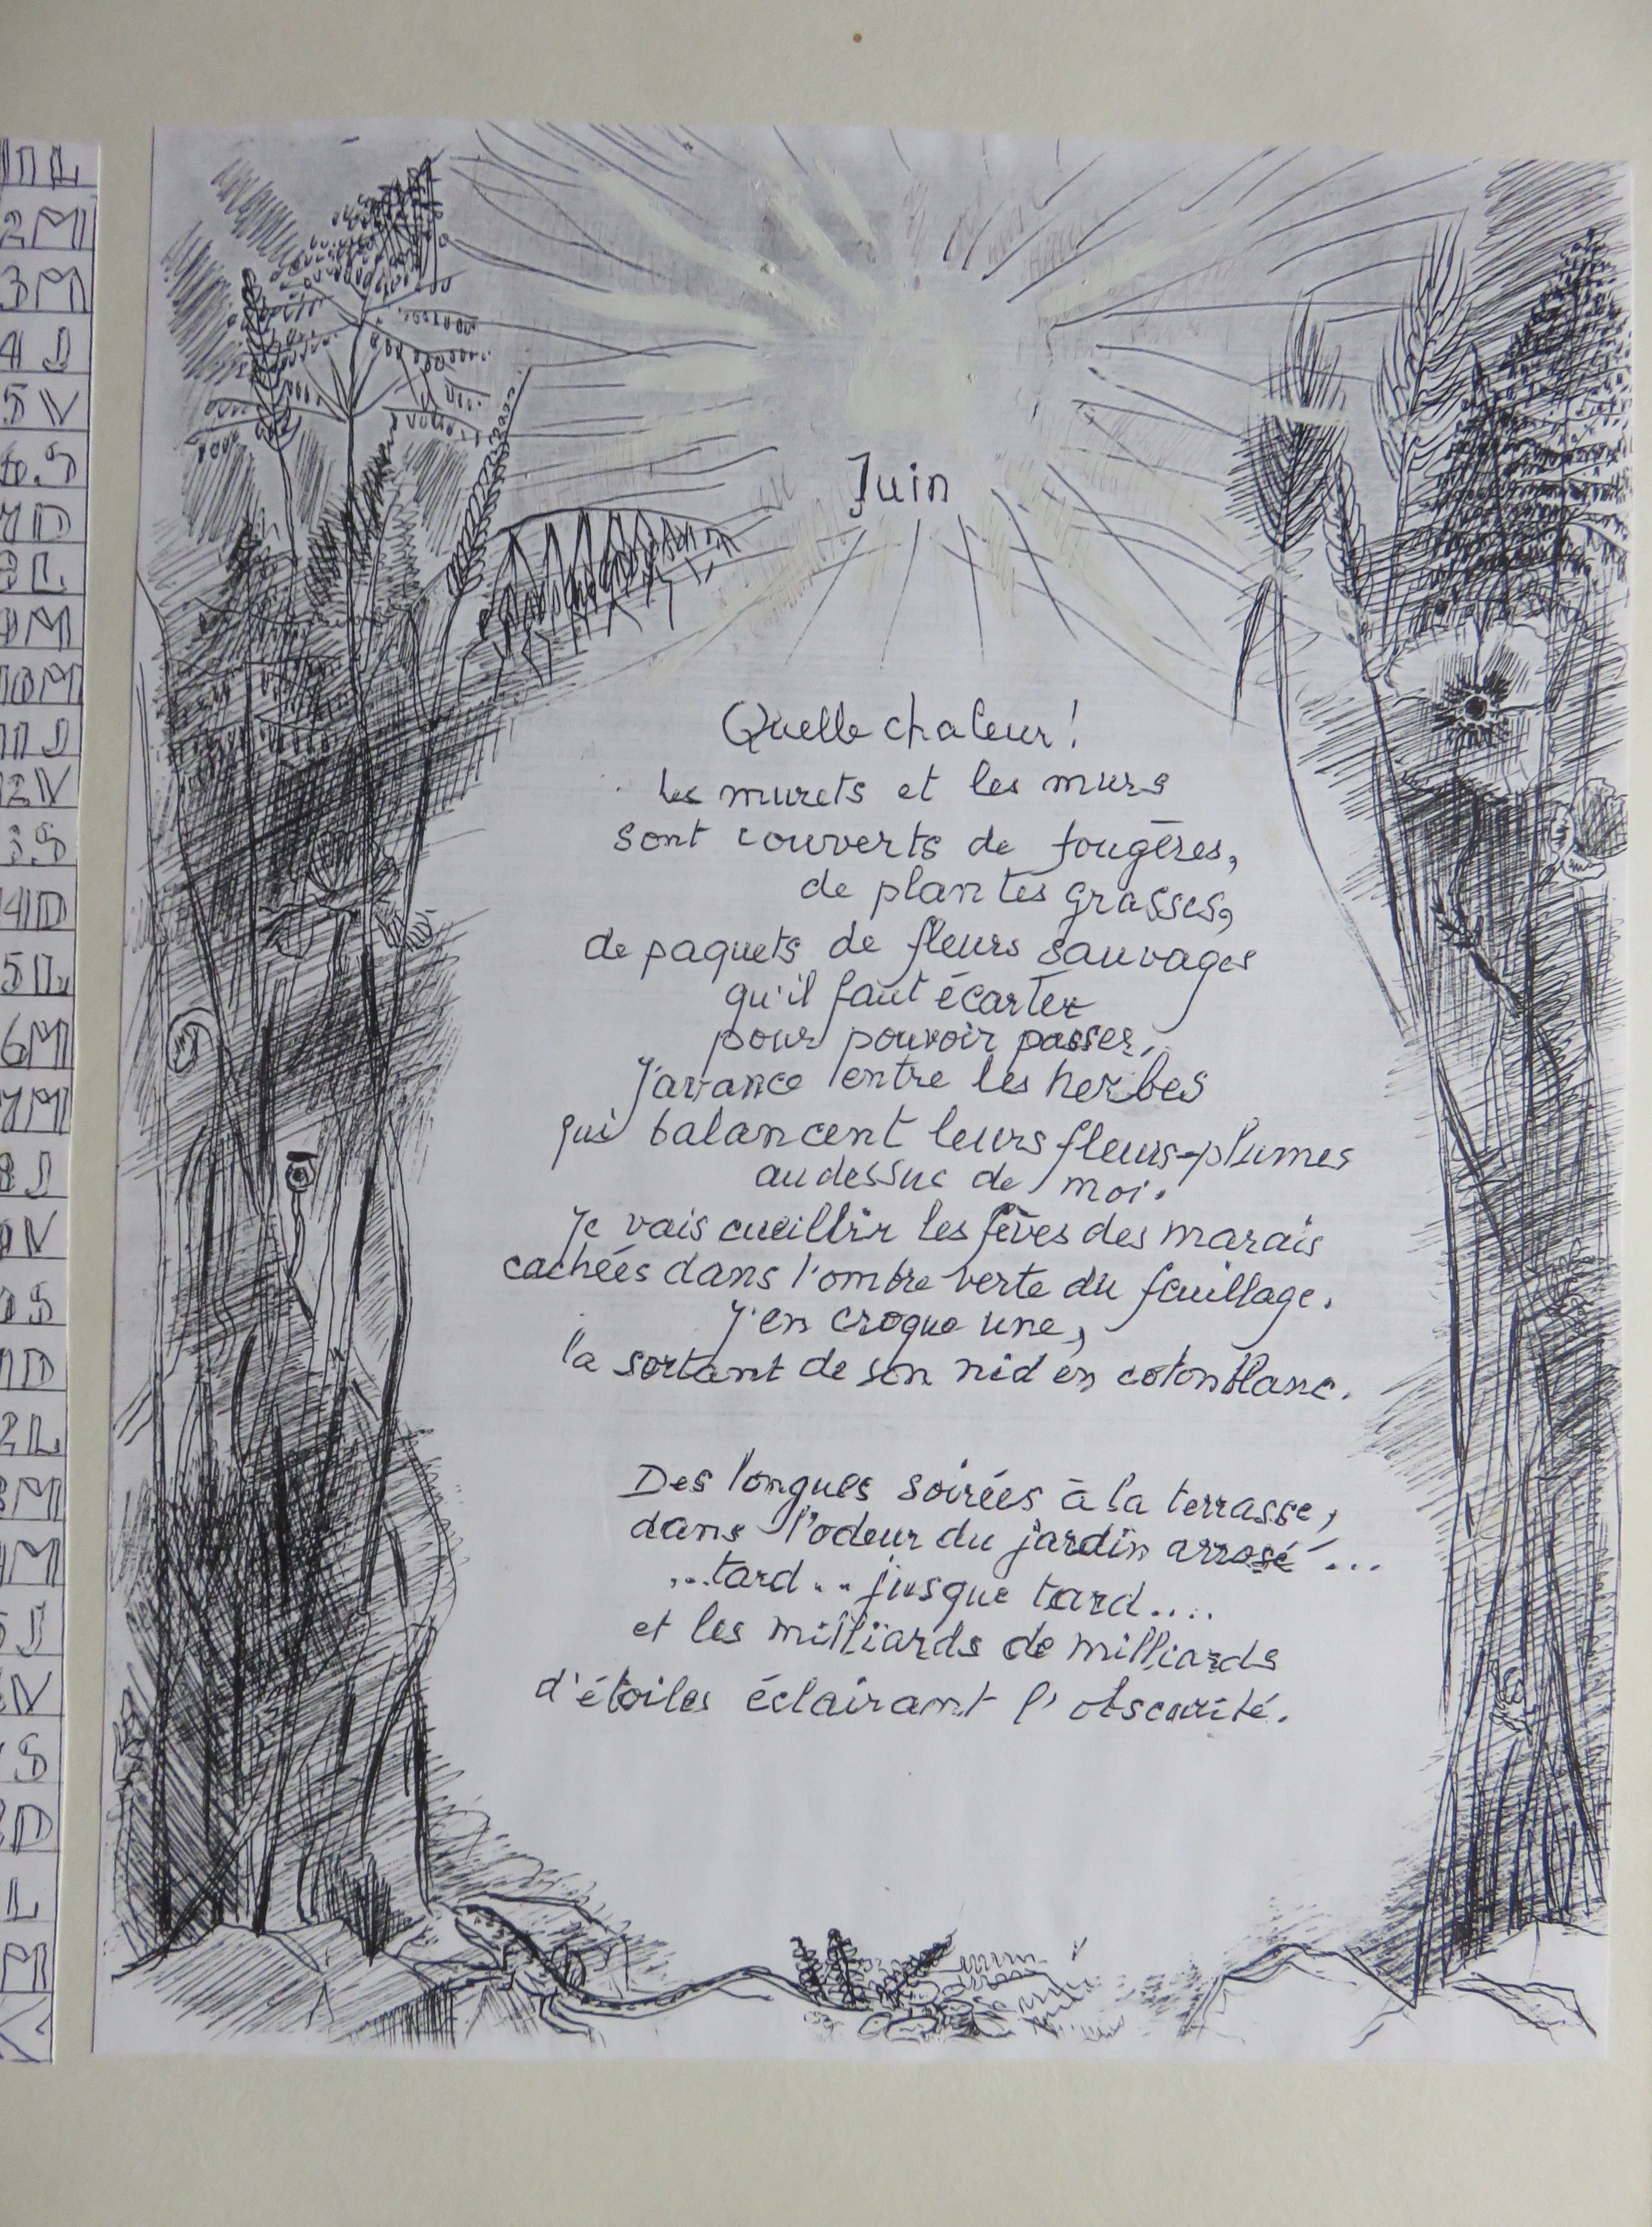 1 L
2 M
3 M
4 J
5 V
6 S
7 D
8 L
9 M
10 M
11 J
12 V
3 S
4 D
5 L
6 M
7 M
8 J
9 V
0 S
1 D
2 L
3 M
4 M
5 J
V
S
D
L
M
Juin
Quelle chaleur !
Les murets et les murs
sont couverts de fougères,
de plantes grasses,
de paquets de fleurs sauvages
qu'il faut écarter
pour pouvoir passer.
J'avance entre les herbes
qui balancent leurs fleurs-plumes
au dessus de moi.
Je vais cueillir les fèves des marais
cachées dans l'ombre verte du feuillage.
J'en croque une,
la sortant de son nid en coton blanc.
Des longues soirées à la terrasse,
dans l'odeur du jardin arrosé ...
...tard .. jusque tard....
et les milliards de milliards
d'étoiles éclairant l'obscurité.